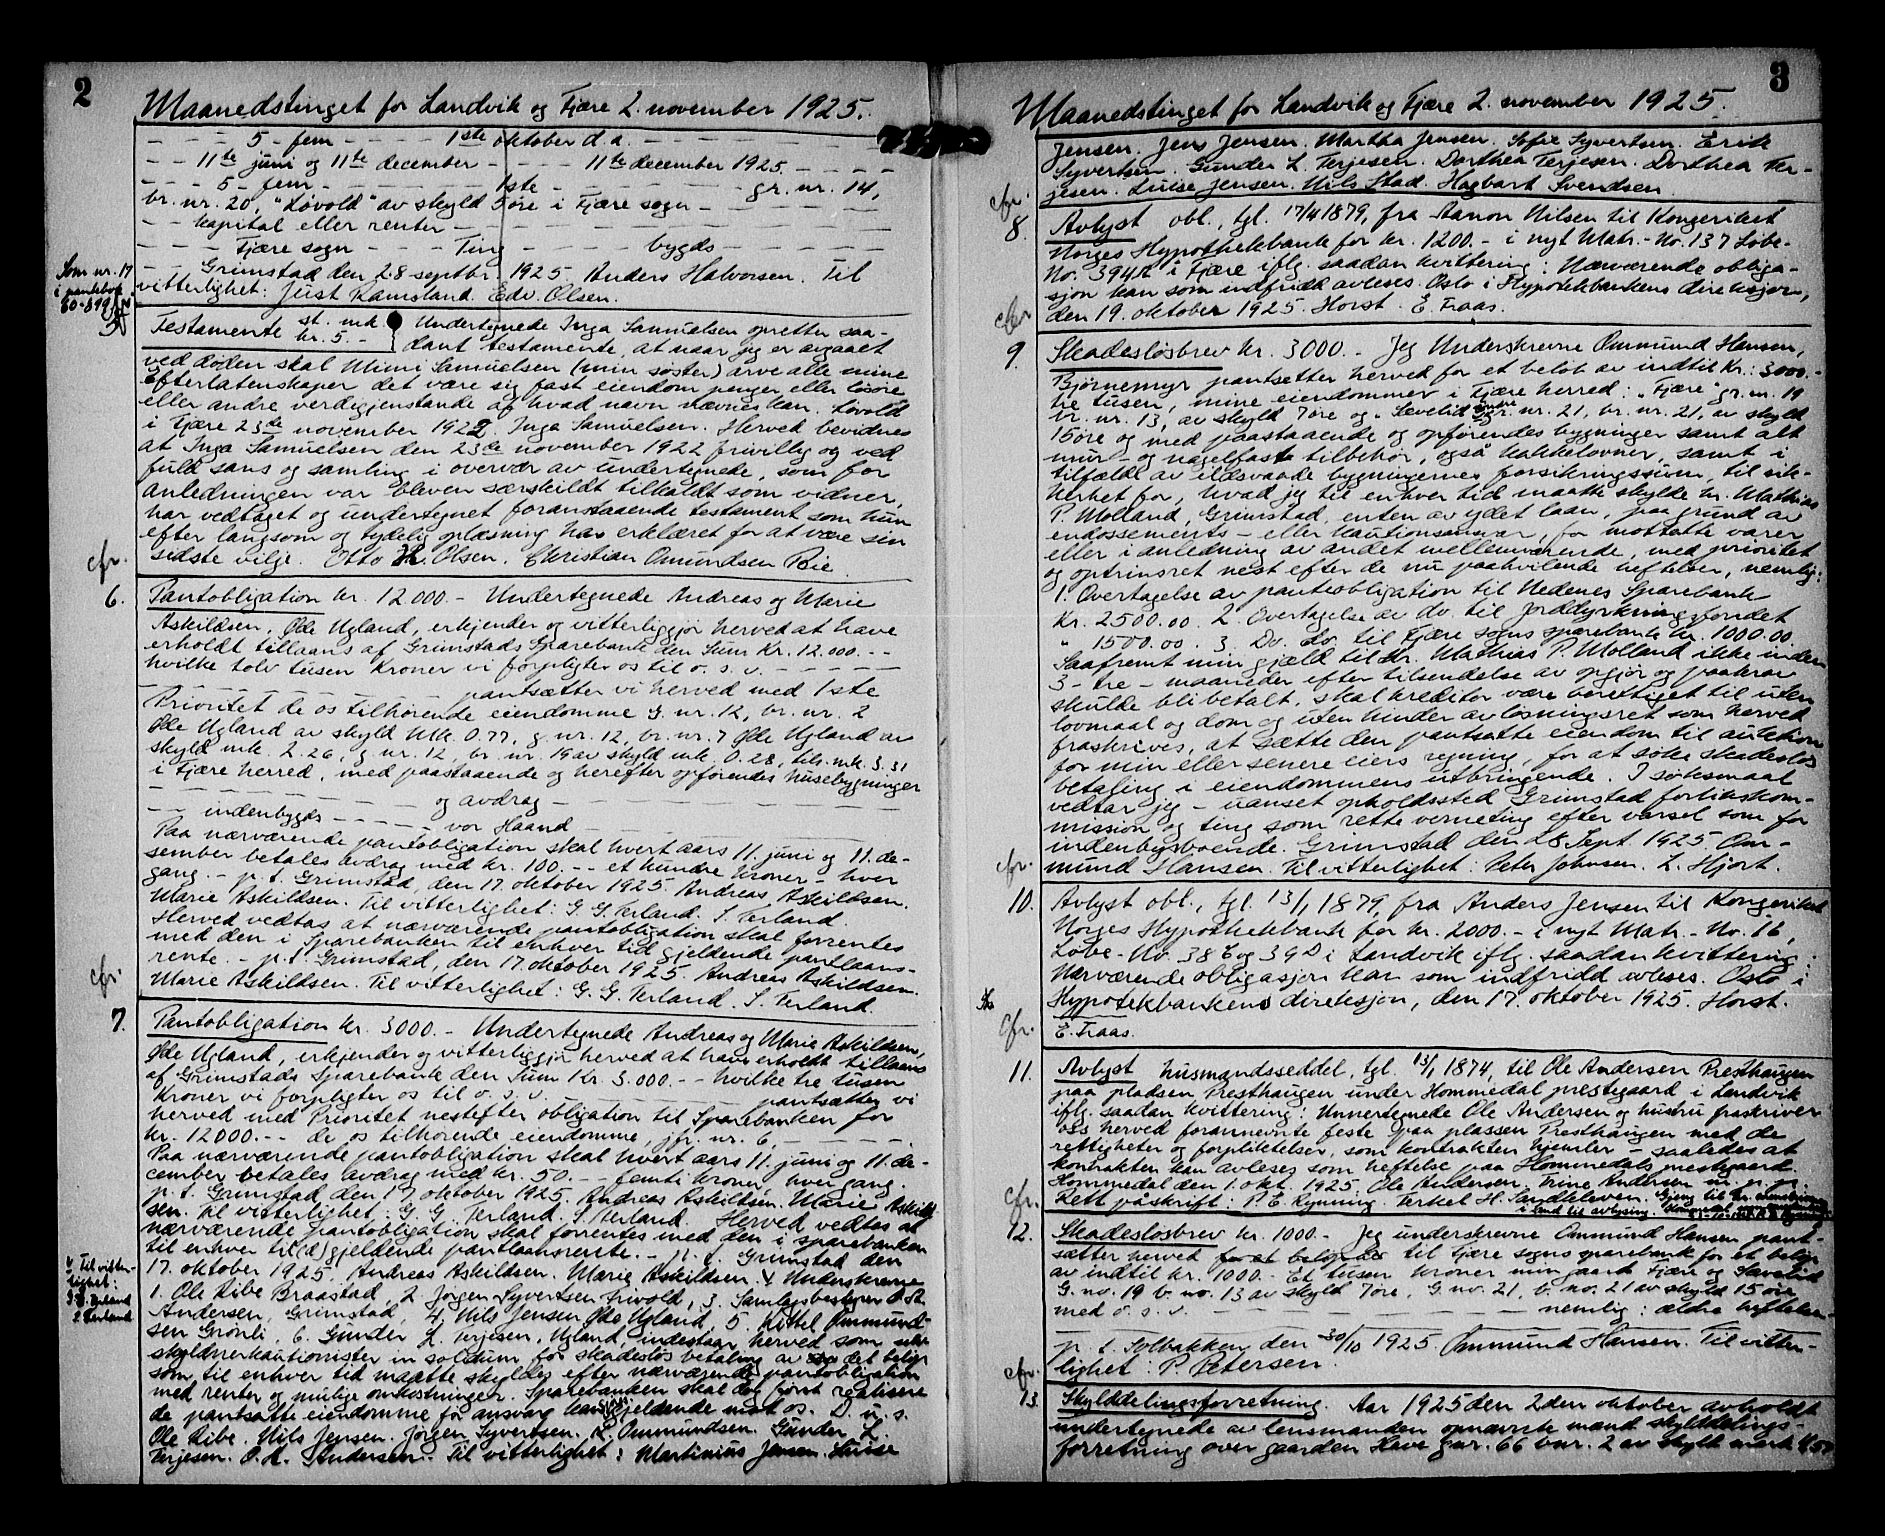 2
Maanedstinget for Landvik og Fjære 2. november 1925.
— — 5 - fem — — — 1ste oktober d.a. — — —
— — 11te juni og 11te december — — — 11te december 1925. — — — —
— — — 5 - fem — — — — — 1ste — — — — — gr. nr. 14,
br. nr. 20, "Løvold" av skyld 5 øre i Fjære sogn — — —
— — kapital eller renter — — — —
— — — Fjære sogn — — — Ting — — — bygds — — — —
— — Grimstad den 28 septbr. 1925. Anders Halvorsen. Til
vitterlighet: Just Ramsland. Edv. Olsen.
Som nr. 17
i pantebok
Testamente st. mk Undertegnede Inga Samuelsen opretter saa-
kr. 5.- dant testamente, at naar jeg er avgaaet
ved døden skal Mimi Samuelsen (min søster) arve alle mine
efterlatenskaper det være sig fast eiendom penger eller løsøre
eller andre verdigjenstande af hvad navn nævnes kan. Løvold
i Fjære 23de november 1922. Inga Samuelsen. Herved bevidnes
at Inga Samuelsen den 23de november 1922 frivillig og ved
fuld sans og samling i overvær av undertegnede, som for
anledningen var bleven særskildt tilkaldt som vidner,
har vedtaget og undertegnet foranstaaende testament som hun
efter langsom og tydelig oplæsning har erklæret for at være sin
sidste vilje. Otto H. Olsen. Christian Omundsen Bie
cfr.
6. Pantobligation kr. 12000.- Undertegnede Andreas og Marie
Askildsen, Øde Ugland, erkjender og vitterliggjør herved at have
erholdt tillaans af Grimstads Sparebank den Sum Kr. 12.000.--
hvilke tolv tusen Kroner vi forpligter os til o. s. v. — — — — —
— — — — — pantsætter vi herved med 1ste
Prioritet de os tilhørende eiendomme G. nr. 12, br. nr. 2
Øde Ugland av skyld Mk. 0.77, g. nr. 12, br. nr. 7 Øde Ugland av
skyld mk. 2.26, g. nr. 12, br. nr. 19 av skyld mk. 0.28, tils. mk. 3.31
i Fjære herred, med paastaaende og herefter opførendes husebygninger
— — — — — og avdrag — — — — —
— — indenbygds — — — — vor Haand — — — —
Paa nærværende pantobligation skal hvert aars 11. juni og 11. de-
sember betales avdrag med kr. 100.-- et hundre kroner - hver
gang. - p.t. Grimstad, den 17. oktober 1925. Andreas Askildsen.
Marie Askildsen. Til vitterlighet: G. G. Terland. S. Terland.
Herved vedtas at nærværende pantobligation skal forrentes
med den i Sparebanken til enhver tid gjeldende pantlaans-
rente. - p.t. Grimstad, den 17. oktober 1925. Andreas Askildsen.
Marie Askildsen. Til vitterlighet: G. G. Terland. S. Terland.
cfr.
7. Pantobligation kr. 3000.- Undertegnede Andreas og Marie Askildsen,
Øde Ugland, erkjender og vitterliggjør herved at have erholdt tillaans
af Grimstads Sparebank den Sum Kr. 3.000.-- hvilke tre tusen
Kroner vi forpligter os til o. s. v. — — — — — pantsætter vi
herved med Prioritet nestefter obligation til Sparebanken for
kr. 12000.-- de os tilhørende eiendomme, jfr. nr. 6, — — — —
Paa nærværende pantobligation skal hvert aars 11. juni og 11. de-
cember betales avdrag med kr. 50.-- femti kroner hver gang.
p.t. Grimstad, den 17. oktober 1925. Andreas Askildsen. Marie Askild-
sen. Til vitterlighet: G. G. Terland. S. Terland. Herved vedtas at
nærværende pantobligation skal forrentes med den i sparebanken
til enhver ti(d) gjeldende pantlaansrente. - p.t. Grimstad den
17. oktober 1925. Andreas Askildsen. Marie Askildsen. Underskrevne
Til vitter-
lighet:
G. G. Terland
S. Terland
1. Ole Ribe Braastad, 2. Jørgen Syvertsen Frivold, 3. Samlagsbestyrer O. A.
Andersen, Grimstad, 4. Nils Jensen Øde Ugland, 5. Kittel Ommund-
sen Grønli, 6. Gunder L. Terjesen, Ugland, indestaar herved som selv-
skyldnerkautionister in solidum for skadesløs betaling av det beløp
som til enhver tid maatte skyldes efter nærværende pantobligation
med renter og mulige omkostninger. Sparebanken skal dog først realisere
de pantsatte eiendomme før ansvar kan gjeldende mot os. D. u. s.
Ole Ribe. Nils Jensen. Jørgen Syvertsen. K. Ommundsen. Gunder L.
Terjesen. O. A. Andersen. Til vitterlighet: Martinius Jensen. Luise
3
Maanedstinget for Landvik og Fjære 2. november 1925.
Jensen. Jens Jensen. Martha Jensen. Sofie Syvertsen. Erik
Syvertsen. Gunder L. Terjesen. Dorthea Terjesen. Dorthea Ter-
jesen. Luise Jensen. Nils Stad. Hagbart Svendsen.
cfr.
8. Avlyst obl., tgl. 17/4 1879, fra Aanon Nilsen til Kongeriket
Norges Hypothekbank for kr. 1200.- i nyt Matr.-No. 137 Løbe-
No. 394a i Fjære iflg. saadan kvittering: Nærværende obliga-
sjon kan som indfridd avleses. Oslo i Hypotekbankens direksjon,
den 19. oktober 1925. Horst. E. Fraas.
cfr.
9. Skadesløsbrev kr. 3000.- Jeg Underskrevne Ommund Hansen,
Bjørnemyr pantsetter herved for et beløb av indtil kr.: 3000.-
tre tusen, mine eiendommer i Fjære herred: "Fjære" gr. nr. 19
br. nr. 13, av skyld 7 øre og "Sævelid" gr. nr. 21, br. nr. 21, av skyld
15 øre og med paastaaende og opførendes bygninger samt alt
mur- og nagelfast tilbehør, også kakkelovner, samt i
tilfælde av ildsvaade bygningernes forsikringssum, til sik-
kerhet for, hvad jeg til enhver tid maatte skylde hr. Mathias
P. Molland, Grimstad, enten av ydet laan, paa grund av
endossements- eller kautionsansvar, for mottatte varer
eller i anledning av andet mellemværende, med prioritet
og optrinsret nest efter de nu paahvilende heftelser, nemlig:
1. Overtagelse av panteobligation til Nedenes Sparebank
Kr. 2500.00. 2. Overtagelse av do til Jorddyrkningsfondet
" 1500.00. 3. Do. do. til Fjære sogns sparebank kr. 1000.00.
Saafremt min gjæld til Hr. Mathias P. Molland ikke inden
3 - tre - maaneder efter tilsendelse av opgjør og paakrav
skulde bli betalt, skal kreditor være berettiget til uten
lovmaal og dom og uten hinder av løsningsret som herved
fraskrives, at sætte den pantsatte eiendom til auktion
for min eller senere eiers regning, for at søke skadesløs
betaling i eiendommens utbringende. I søksmaal
vedtar jeg - uanset opholdssted Grimstad forlikskom-
mission og ting som rette verneting efter varsel som for
indenbysboende. Grimstad den 28 Sept. 1925. Om-
mund Hansen. Til vitterlighet: Peter Johnsen. L. Hjort.
cfr.
10. Avlyst obl., tgl. 13/1 1879, fra Anders Jensen til Kongeriket
Norges Hypothekbank for kr. 2000.- i nyt Matr.-No. 16,
Løbe-No. 38b og 39d i Landvik iflg. saadan kvittering:
Nærværende obligasjon kan som indfridd avleses. Oslo i
Hypotekbankens direksjon, den 17. oktober 1925. Horst.
E. Fraas.
cfr.
11. Avlyst husmandsseddel, tgl. 13/1 1874, til Ole Andersen Presthaugen
paa pladsen Presthaugen under Hommedal prestegaard i Landvik
iflg. saadan kvittering: Unnertegnede Ole Andersen og hustru fraskriver
oss herved forannevnte feste paa plassen Presthaugen med de
rettigheter og forpliktelser, som kontrakten hjemler - saaledes at
kontrakten kan avleses som heftelse paa Hommedals prestegaard.
Hommedal den 1. okt. 1925. Ole Andersen. Trine Andersen m. p. p.
Rett påskrift: P. E. Rynning. Terkel H. Sandkleiven.
cfr.
12. Skadesløsbrev kr. 1000.- Jeg underskrevne Ommund Hansen pant-
sætter herved til Fjære sogns sparebank for et beløp
av indtil kr. 1000.- Et tusen kroner min gaard Fjære og Sævelid
G. no. 19 b. no. 13 av skyld 7 øre, G. no. 21, b. no. 21 av skyld 15 øre
med o. s. v. — — — — — — — nemlig: ældre heftelser
p.t. Solbakken, den 30/10 1925. Ommund Hansen. Til vitter-
lighet: P. Petersen.
cfr.
13. Skylddelingsforretning. Aar 1925 den 2den oktober avholdt
undertegnede av lensmanden opnævnte mænd skylddelings-
forretning over gaarden Reve gnr. 66 bnr. 2 av skyld mark